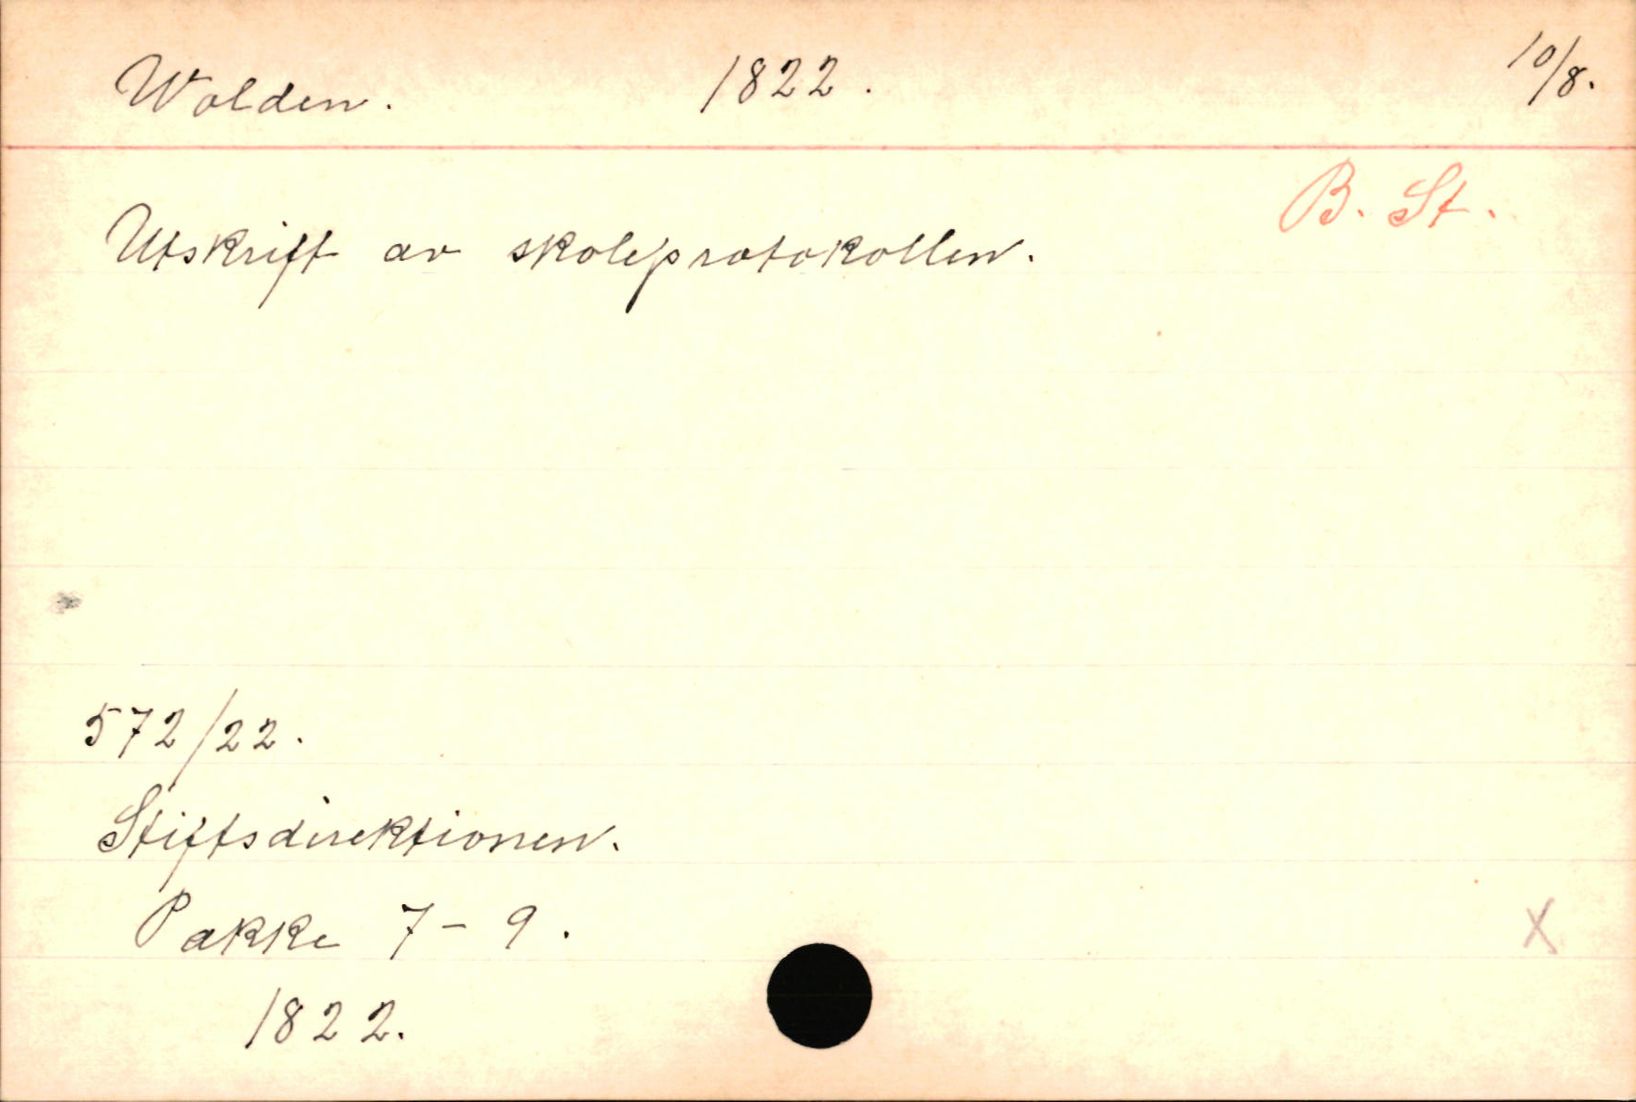 Wolden. 1822. 10/8.
B. St.
Utskrift av skoleprotokollen.
572/22.
Stiftsdirektionen.
Pakke 7-9.
X
1822.